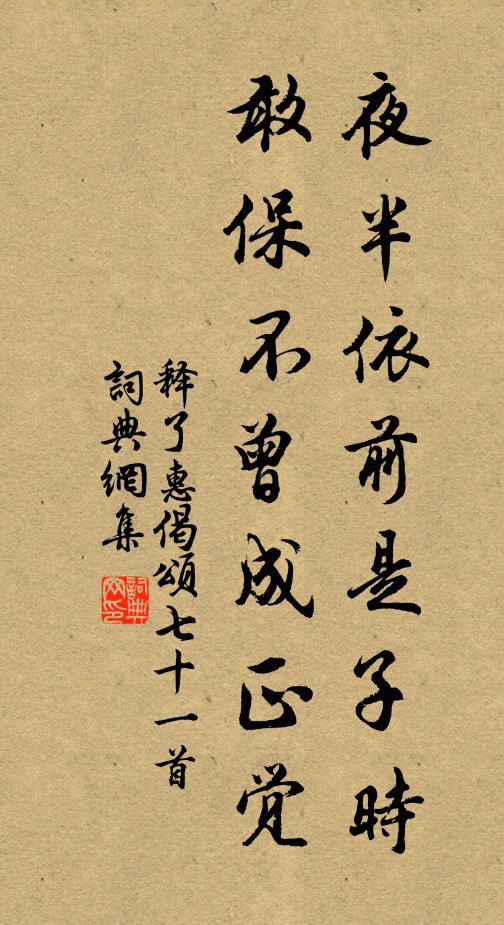 夜半依前是子時
敢保不曾成正覺
释了惠偈頌七十一首
詞典網集
詞典
网印